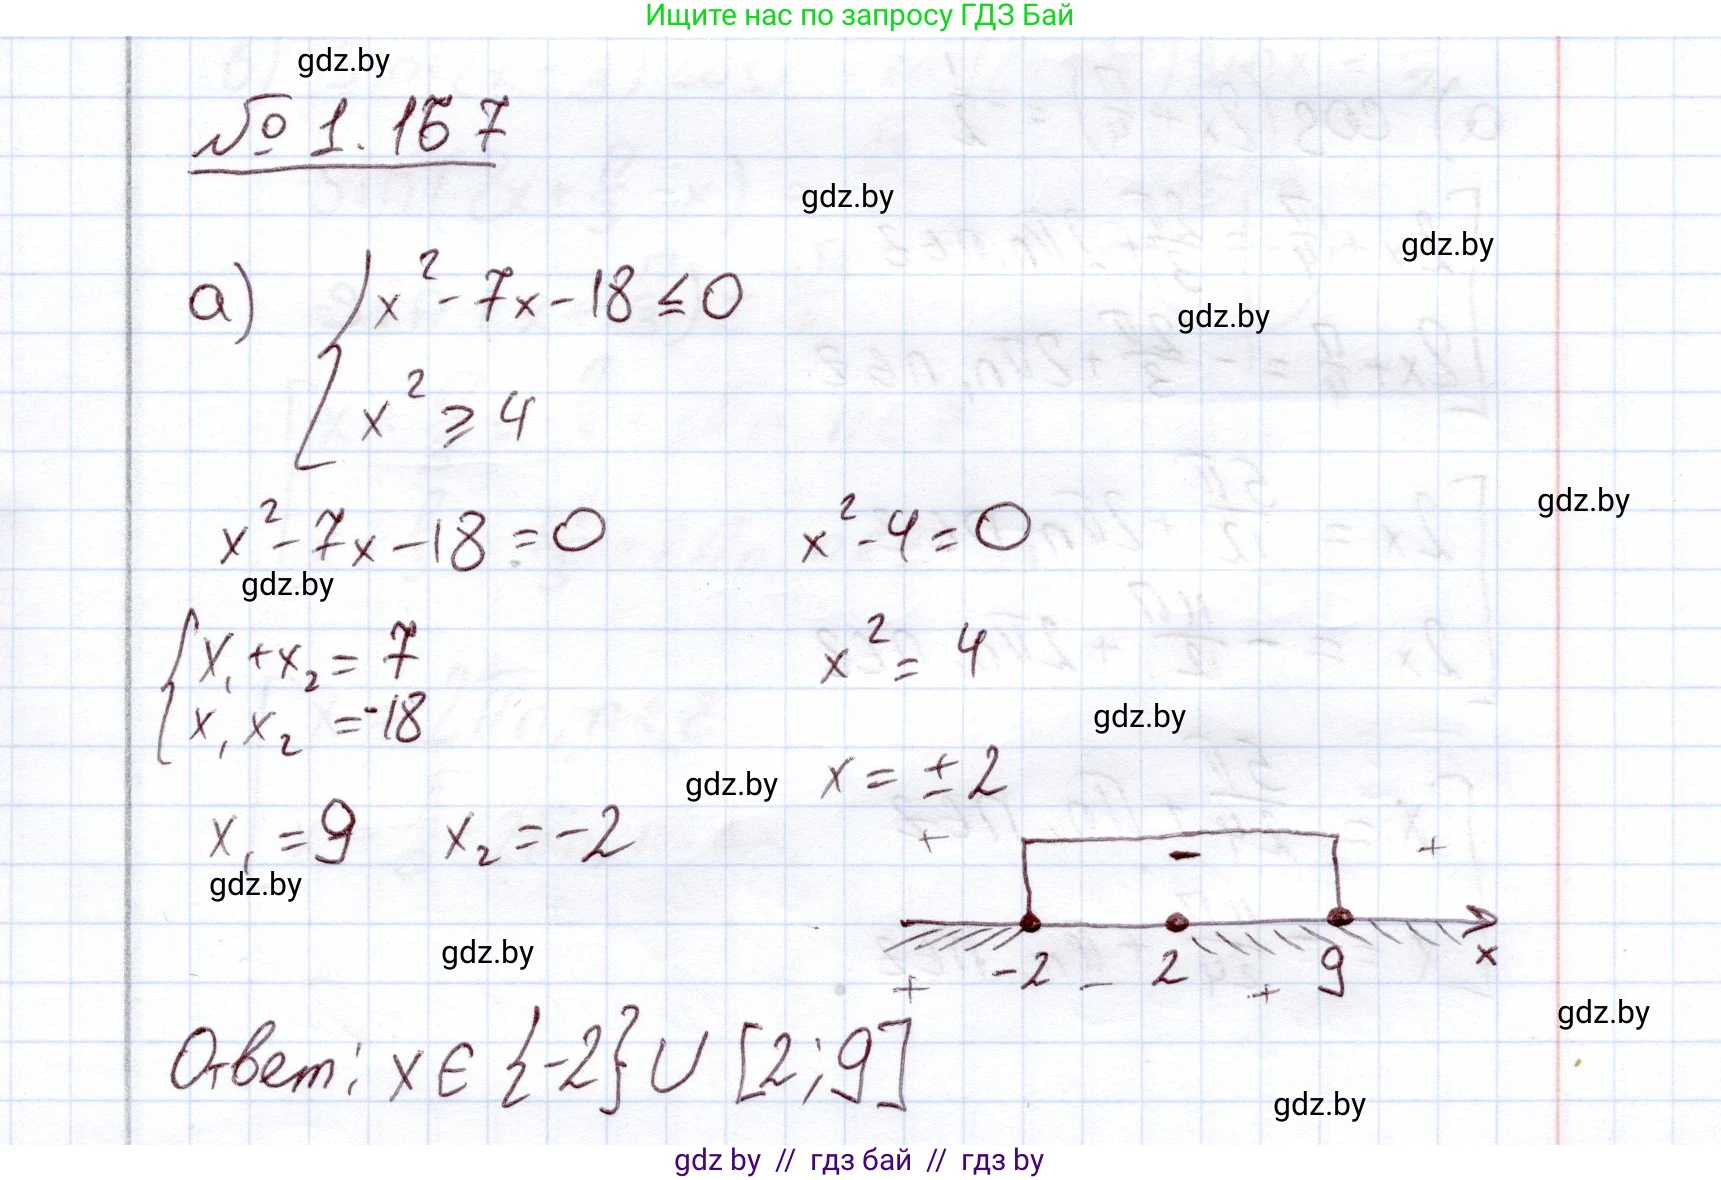 Ищите нас по запросу ГДЗ Бай
gdz.by
№ 1.167
gdz.by
gdz.by
а) { x² - 7x - 18 ≤ 0
gdz.by
x² ≥ 4
gdz.by
x² - 7x - 18 = 0 x² - 4 = 0
gdz.by
{ x₁ + x₂ = 7 x² = 4
x₁ x₂ = -18
gdz.by
gdz.by x = ± 2
x₁ = 9 x₂ = -2
+ - +
gdz.by
gdz.by
-2 2 9 x
+ - +
gdz.by
Ответ: x ∈ {-2} ∪ [2; 9]
gdz.by
gdz by // гдз бай // гдз by